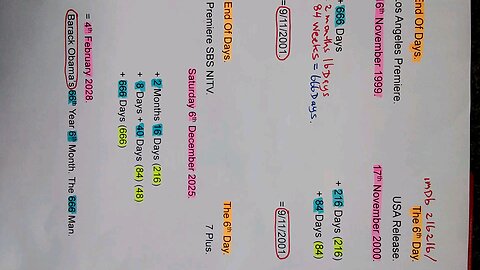 End Of Days.
Los Angeles Premiere.
16th November 1999.
+ 668 Days
2 months 16 Days
84 weeks = 666 Days.
= 9/11/2001
imDb 216216/
The 6th Day
USA Release.
17th November 2000.
+ 216 Days (216)
+ 84 Days (84)
= 9/11/2001
End Of Days.
Premiere SBS NITV.
The 6th Day.
7 Plus.
Saturday 6th December 2025.
+ 2 Months 16 Days (216)
+ 8 Days + 40 Days (84) (48)
+ 666 Days (666)
= 4th February 2028.
Barack Obama's 66th Year 6th Month. The 666 Man.